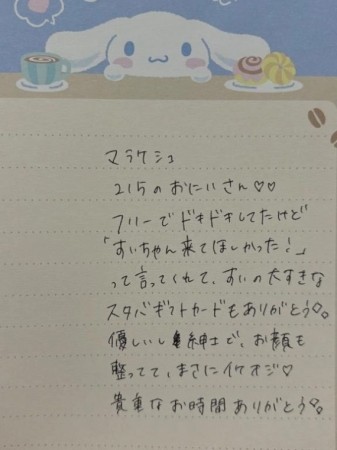 マラケシュ
215のおにいさん♡♡
フリーでドキドキしてたけど
「すいちゃん来てほしかった！」
って言ってくれて、すいの大すきな
スタバギフトカードもありがとう。
優しいし紳士で、お顔も
整ってて、まさにイケオジ♡
貴重なお時間ありがとう。